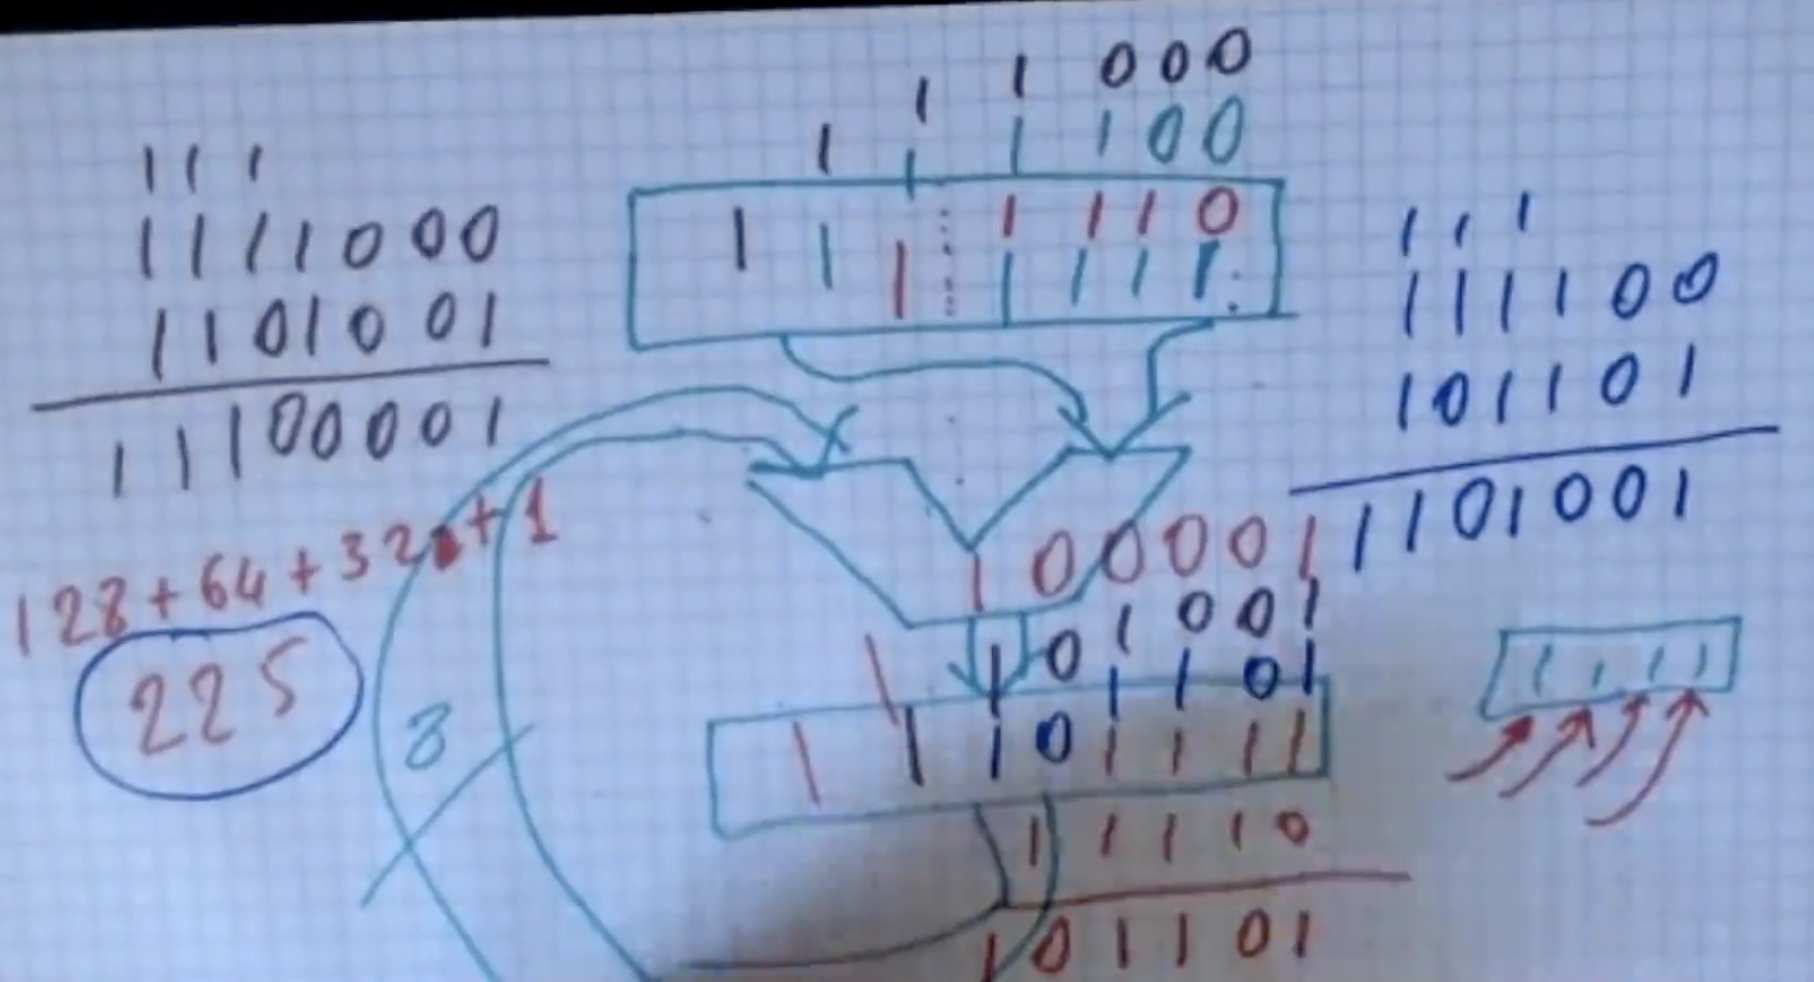 1 1 1
1 1 1 1 0 0 0
1 1 0 1 0 0 1
1 1 1 0 0 0 0 1
128 + 64 + 32 + 1
225
8
1 1 1 0 0 0
1 1 1 1 0 0
1 1 1 1 0
1 1 1 1 1 1 1
1 1 1
1 1 1 1 0 0
1 0 1 1 0 1
1 1 0 1 0 0 1
1 0 0 0 0 1
1 1 0 1 0 0 1
1 1 0 1
1 1 1 0 1 1 1 1
1 1 1 1 0
1 0 1 1 0 1
1 1 1 1